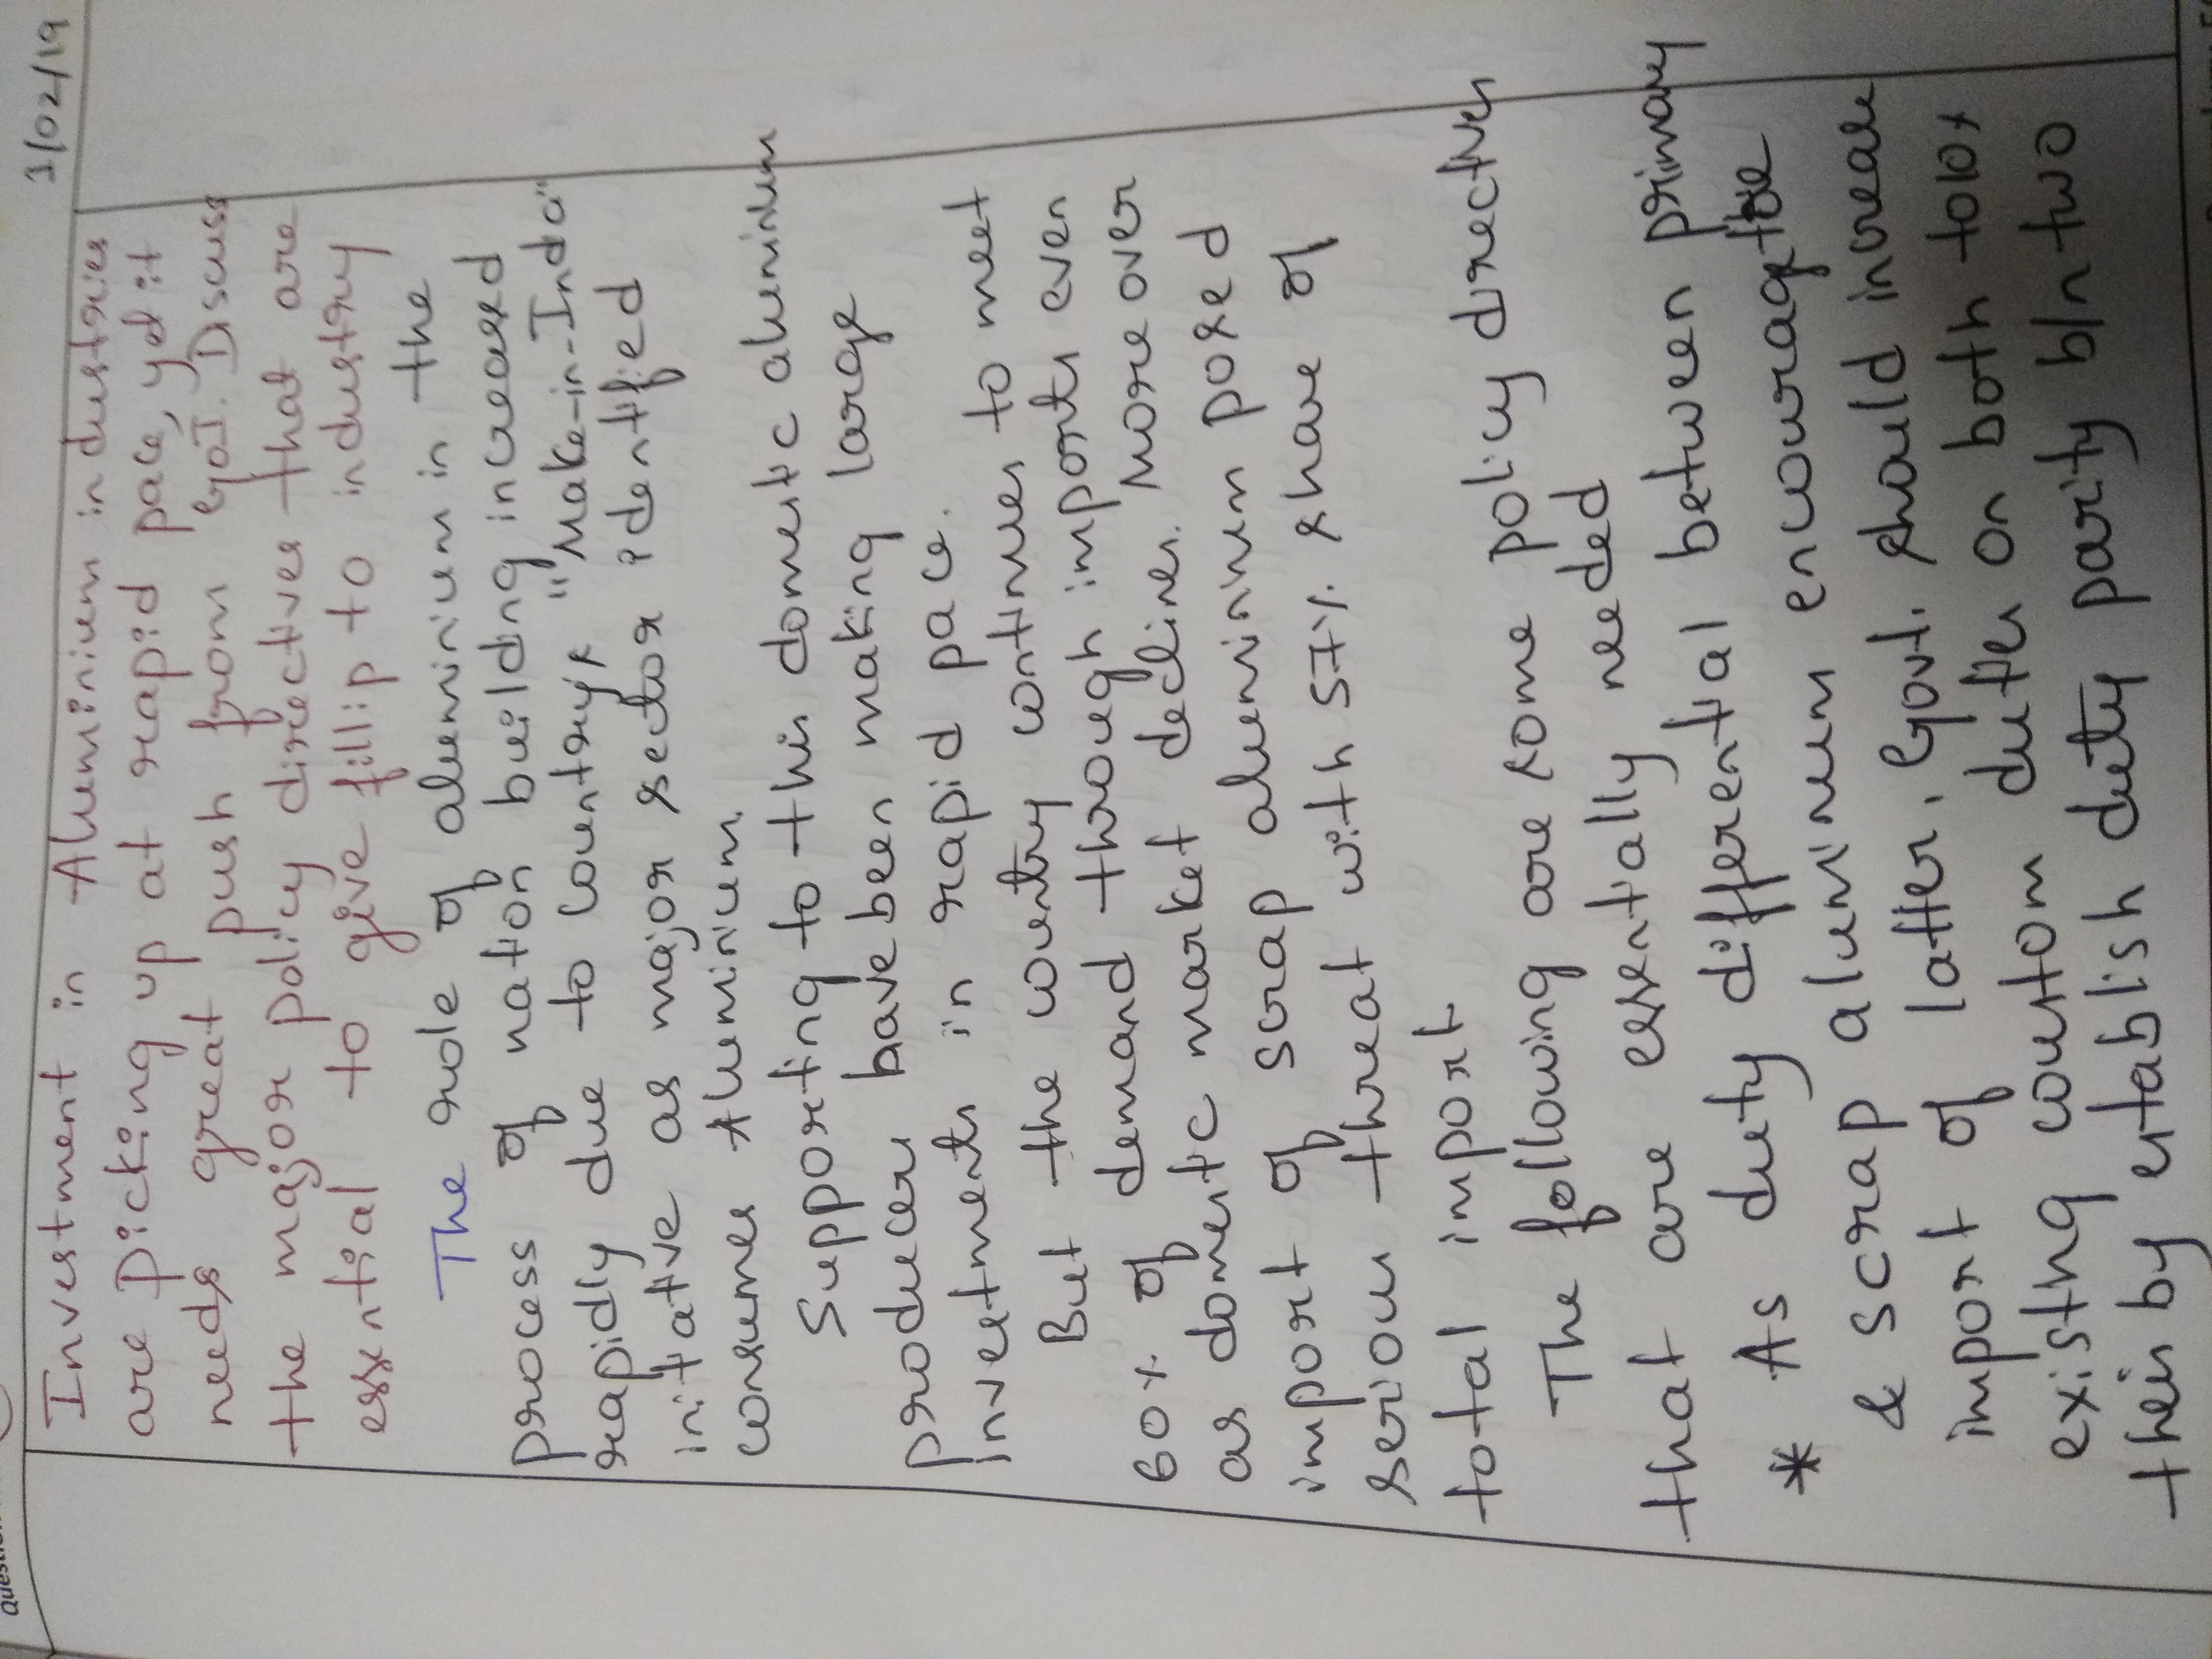 1/02/19
Investment in Aluminium industries
are picking up at rapid pace, yet it
needs great push from GoI. Discuss
the major policy directives that are
essential to give fillip to industry
The role of aluminium in the
process of nation building increased
rapidly due to country's "Make-in-India"
initative as major sector identified
consumes Aluminium.
Supporting to this domestic aluminium
producers have been making large
investments in rapid pace.
But the country continues to meet
60% of demand through imports even
as domestic market declines. Moreover
import of scrap aluminium posed
serious threat with 57% share of
total import.
The following are some policy directives
that are essentially needed
* As duty differential between primary
& scrap aluminum encourage the
import of latter, Govt. should increase
existing custom duties on both to 10%
their by establish duty parity b/n two